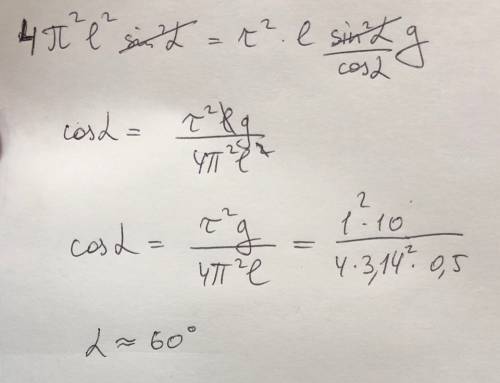 4π²ℓ² sin²α = τ² · ℓ sin²α/cosα g
cosα = τ²ℓg / 4π²ℓ²
cosα = τ²g / 4π²ℓ = 1²·10 / 4·3,14²·0,5
α ≈ 60°